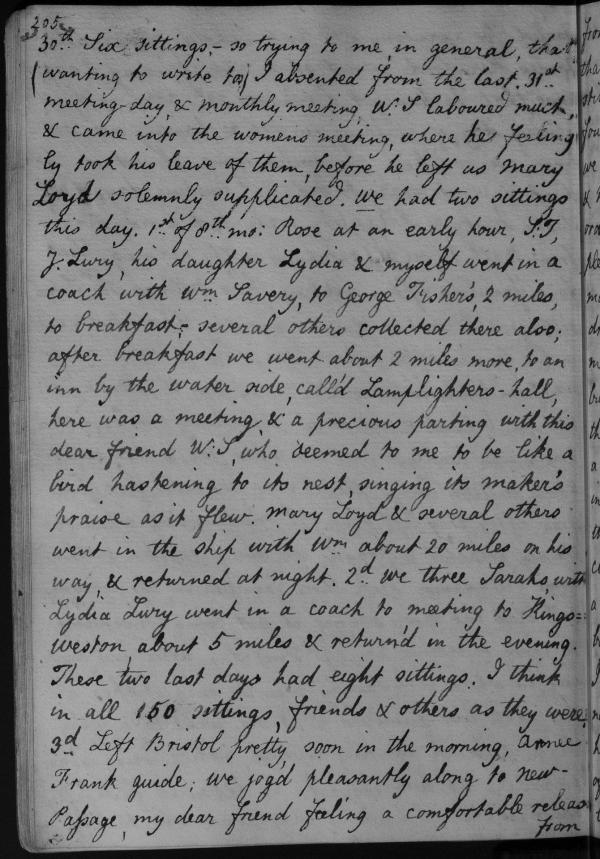 205
30th Six sittings,- so trying to me, in general, that
(wanting to write too) I absented from the last. 31st
meeting-day, & monthly meeting, W. S laboured much,
& came into the womens meeting, where he feeling
ly took his leave of them, before he left us Mary
Loyd solemnly supplicated. We had two sittings
this day. 1st of 8th mo: Rose at an early hour, S: T,
J. Lury, his daughter Lydia & myself went in a
coach with Wm Savery, to George Fisher's, 2 miles,
to breakfast;- several others collected there also;
after breakfast we went about 2 miles more, to an
inn by the water side, call'd Lamplighters-hall,
here was a meeting & a precious parting with this
dear friend W: S, who seemed to me to be like a
bird hastening to its nest, singing its maker's
praise as it flew. Mary Loyd & several others
went in the ship with Wm about 20 miles on his
way, & returned at night. 2d We three Sarahs, with
Lydia Lury went in a coach to meeting to Kings=
weston, about 5 miles & return'd in the evening.
These two last days had eight sittings. I think
in all 150 sittings, friends & others as they were.
3d Left Bristol pretty soon in the morning,
Frank guide; we jog'd pleasantly along to new-
Passage, my dear friend feeling a comfortable releas
from